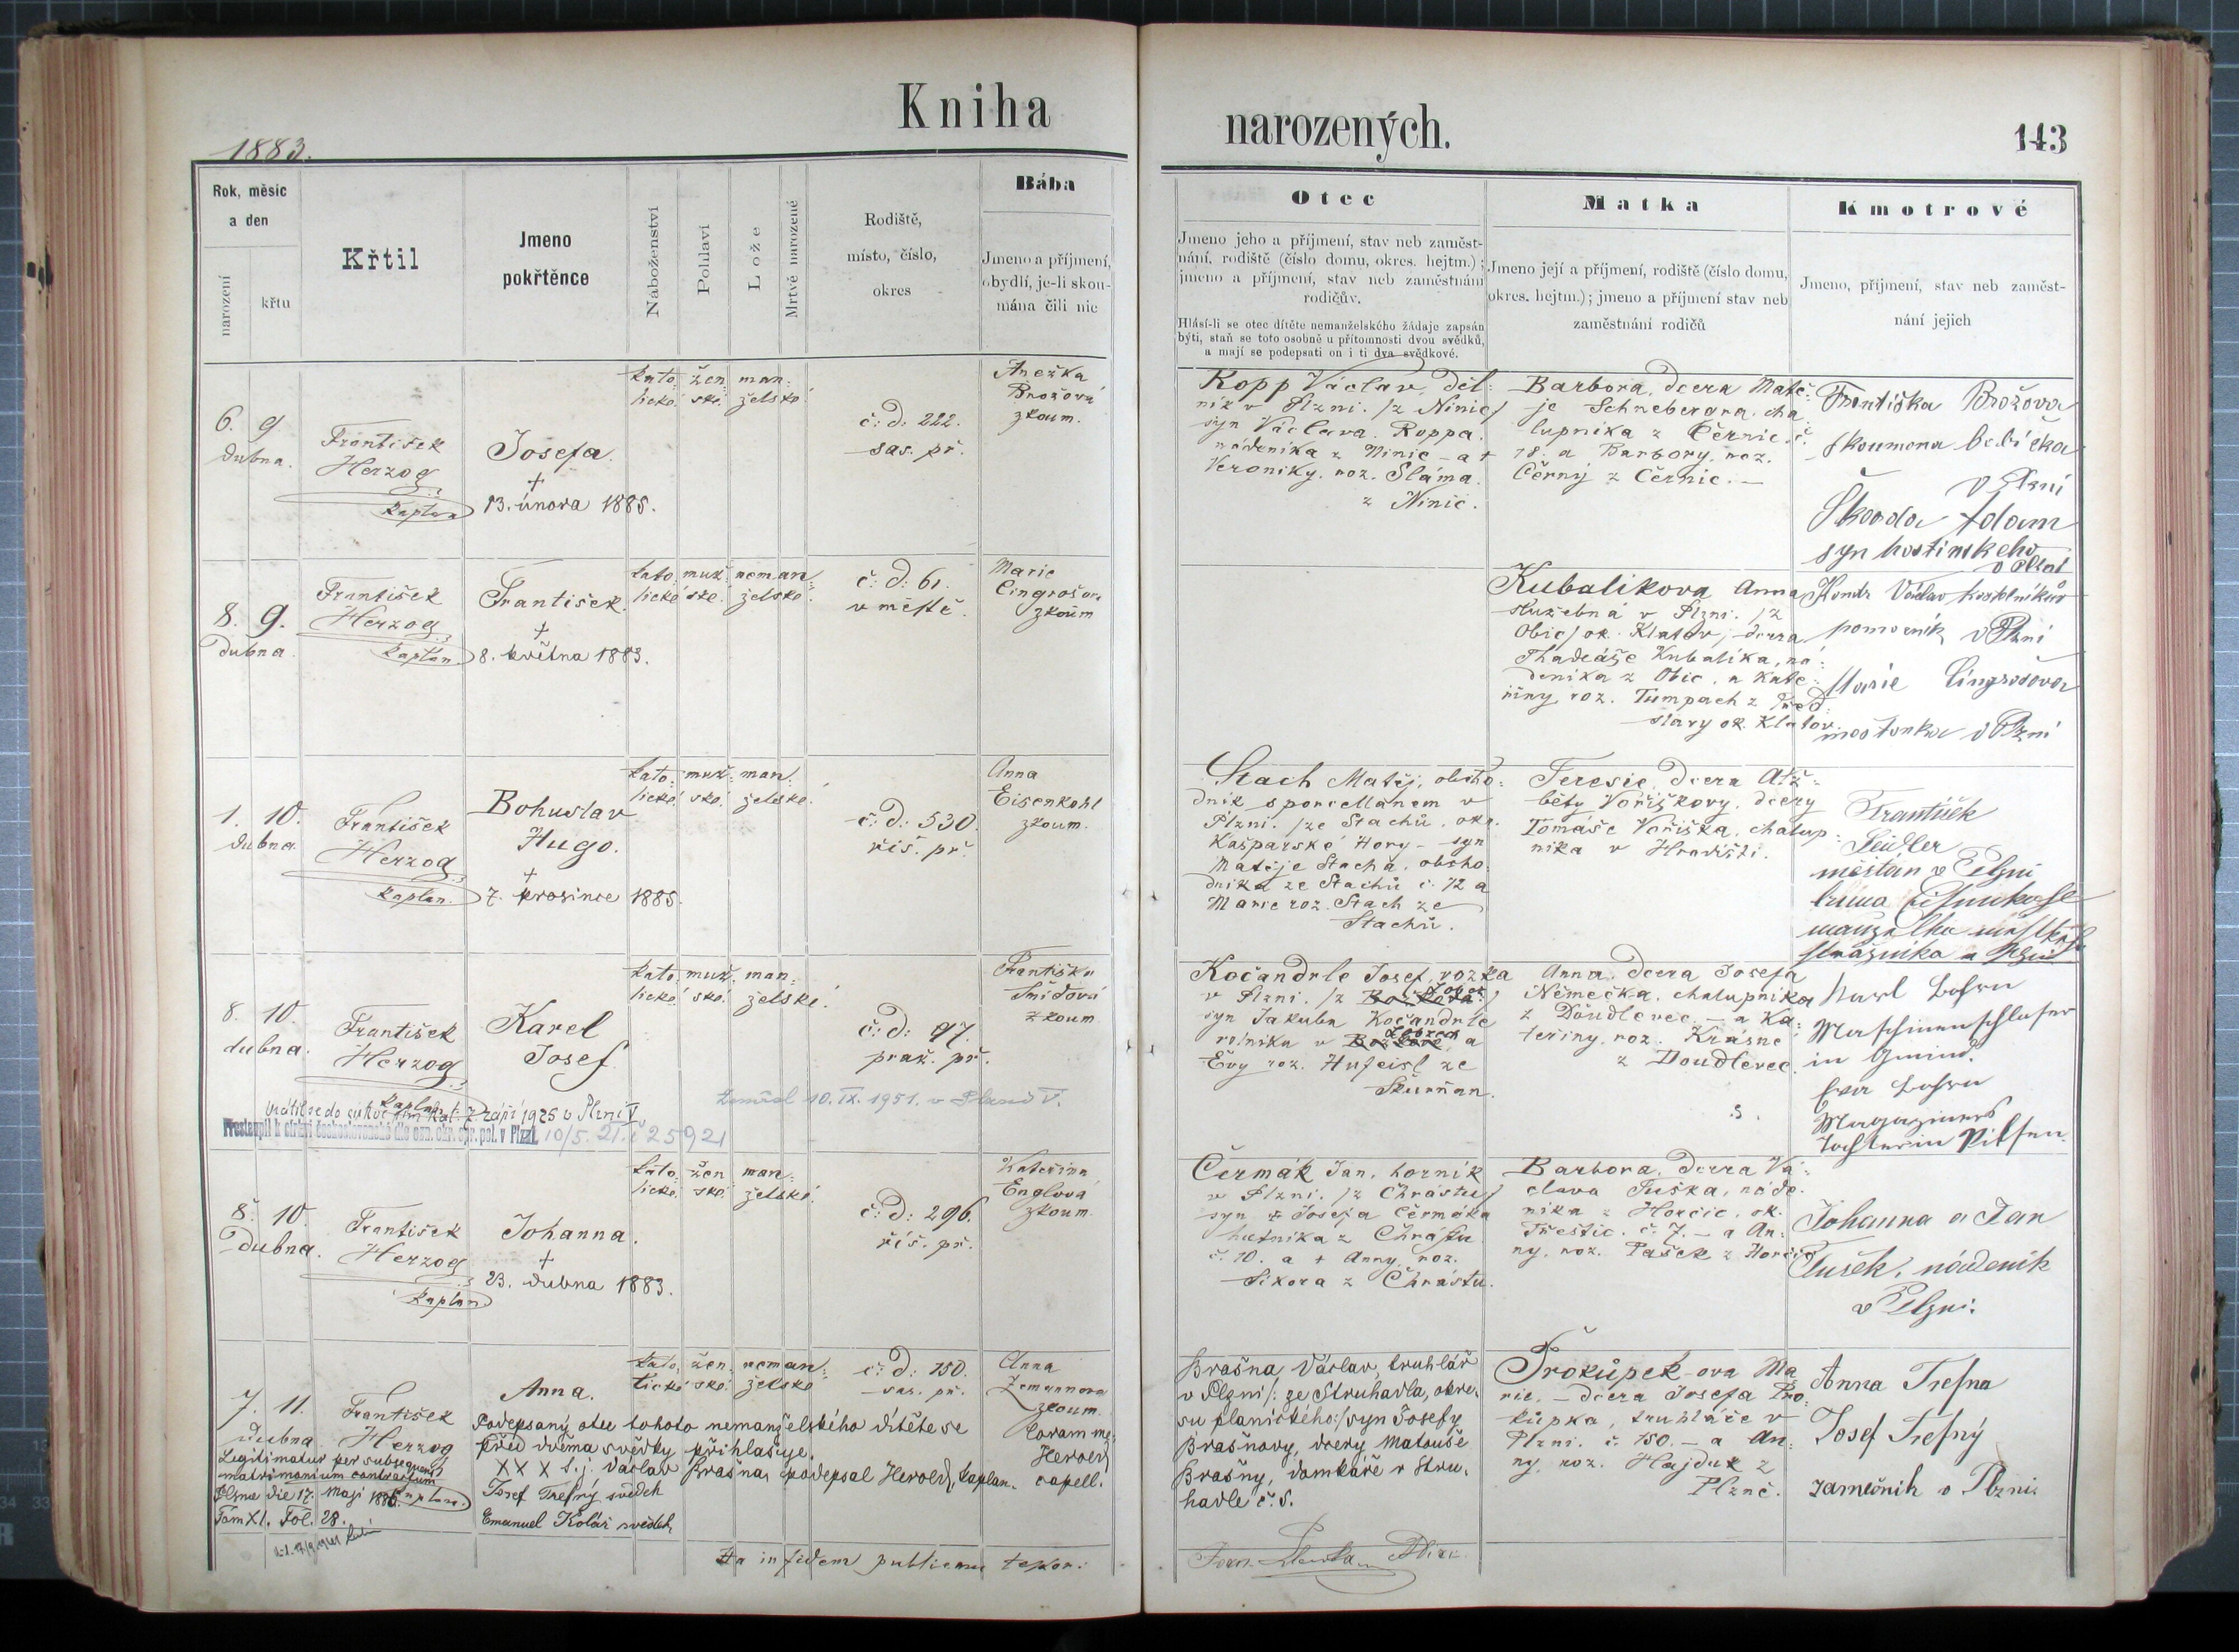 Kniha
narozených.
1883.
143
Rok, měsíc
a den
narození
křtu
Křtil
Jmeno
pokřtěnce
Náboženství
Pohlaví
Lože
Mrtvě narozené
Rodiště,
místo, číslo,
okres
Bába
Jmeno a příjmení,
obydlí, je-li skou-
mána čili nic
Otec
Jmeno jeho a příjmení, stav neb zaměst-
nání, rodiště (číslo domu, okres. hejtm.);
jmeno a příjmení, stav neb zaměstnání
rodičův.
Hlásí-li se otec dítěte nemanželského žádaje zapsán
býti, staň se toto osobně u přítomnosti dvou svědků,
a mají se podepsati on i ti dva svědkové.
Matka
Jmeno její a příjmení, rodiště (číslo domu,
okres. hejtm.); jmeno a příjmení stav neb
zaměstnání rodičů
Kmotrové
Jmeno, příjmení, stav neb zaměst-
nání jejich
6. 9
dubna.
František
Herzog
kaplan
Josefa.
+
13. února 1885.
kato: žen: man:
lické. ské. želské.
č: d: 222.
sas. př.
Anežka
Brožová
zkoum.
Kopp Václav, děl:
ník v Plzni. /z Ninic/
syn Václava Koppa.
nádeníka z Ninic - a +
Veroniky. roz. Sláma.
z Ninic.
Barbora, dcera Matě:
je Schnebergra. cha
lupníka z Černic. č.
18. a Barbory. roz.
Černý z Černic. —
Františka Brožova
skoumena babička
v Plzni
Škooda Adam
syn hostinskeho
v Plzni
8. 9.
Dubna
František
Herzog
kaplan
František.
+
8. května 1883.
kato: muž: neman:
lické ské. želské.
č: d: 61.
v městě.
Marie
zkoum
Kubalikova Anna
služebná v Plzni. /z
Obic/ ok. Klatov, dcera
Thadeáše Kubalíka, ná:
deníka z Obic, a Kate:
řiny, roz. Tumpach z Před:
slavy ok. Klatov.
Václav
pomocník v Plzni
Marie
v Plzni
1. 10.
dubna
František
Herzog
kaplan.
Bohuslav
Hugo.
+
7. prosince 1885.
kato: muž: man:
lické. ské. želské.
č: d: 530.
říš. př.
Anna
Eisenkohl
zkoum.
Stach Matěj, obcho:
dník s porcellánem v
Plzni. /ze Stachů, okr.
Kašparské Hory - syn
Matěje Stacha, obcho
dníka ze Stachů č. 72 a
Marie roz. Stach ze
Stachů.
Teresie, dcera Alž:
běty Voříškovy, dcery
Tomáše Voříška, chalup:
níka v Hradišti.
František
Feidler
měštan v Pelzni
8. 10.
dubna.
František
Herzog
kaplan
Karel
Josef
kato: muž: man:
lické. ské. želské.
č: d: 97.
praž. př.
Františka
Smidová
zkoum
Vrátil se do církve řím. kat. 7 září 1925 v Plzni V.
zemřel 10. IX. 1951. v Plzni V.
Přestoupil k církvi československé dle ozn. okr. spr. pol. v Plzni. 10/5. 21. č 25921
Kočandrle Josef, vozka
v Plzni. /z
syn Jakuba Kočandrle
rolníka v a
Evy roz. Hufeisl ze
Skurňan.
Anna, dcera Josefa
Němečka, chalupníka
z Doudlevec. — a Ka:
teřiny, roz. Krásné
z Doudlevec.
in Gmünd.
Pilsen.
8. 10.
Dubna.
František
Herzog
kaplan
Johanna.
+
23. dubna 1883.
kato: žen man:
lické. ské. želské.
č: d: 296.
říš. př.
Kateřina
Englová
zkoum.
Čermák Jan, horník
v Plzni. /z Chrástu/
syn + Josefa Čermáka
hutníka z Chrástu
č. 10. a + Anny, roz.
Sikora z Chrástu.
Barbora, dcera Vá:
clava Tuška, náde:
níka z Horčic, ok.
Přeštic. č. 7. — a An:
ny, roz. Pašek z Horčic
Johanna a Jan
Tušek, nádeník
v Pelzni.
7. 11.
dubna
František
Herzog
kaplan.
Anna.
kato: žen: neman:
lické ské. želské
č: d: 150.
sas. př.
Anna
Zemannova
zkoum.
Podepsaný otec tohoto nemanželského dítěte se
před dvěma svědky přihlašuje.
XXX t. j. Václav Brašna, podepsal Herold, kaplan.
Josef Trefný svědek
Emanuel Kolář svědek
Coram me
Herold
capell.
Legitimatus per subsequens
matrimonium contractum
Plznae die 17. Maji
Tom XI. Fol. 28.
Brašna Václav, truhlář
v Plzni /: ze Struhadla, okre:
su planického:/ syn Josefy
Brašnovy, dcery Matouše
Brašny, domkáře v Stru:
hadle č. 5.
Prokůpek-ova Ma
rie, — dcera Josefa Pro
kůpka, truhláře v
Plzni. č. 150. — a An:
ny, roz. Hajduk z
Plzně.
Anna Trefna
Josef Trefný
zamečnik v Plzni
Ita in fidem publicam testor: